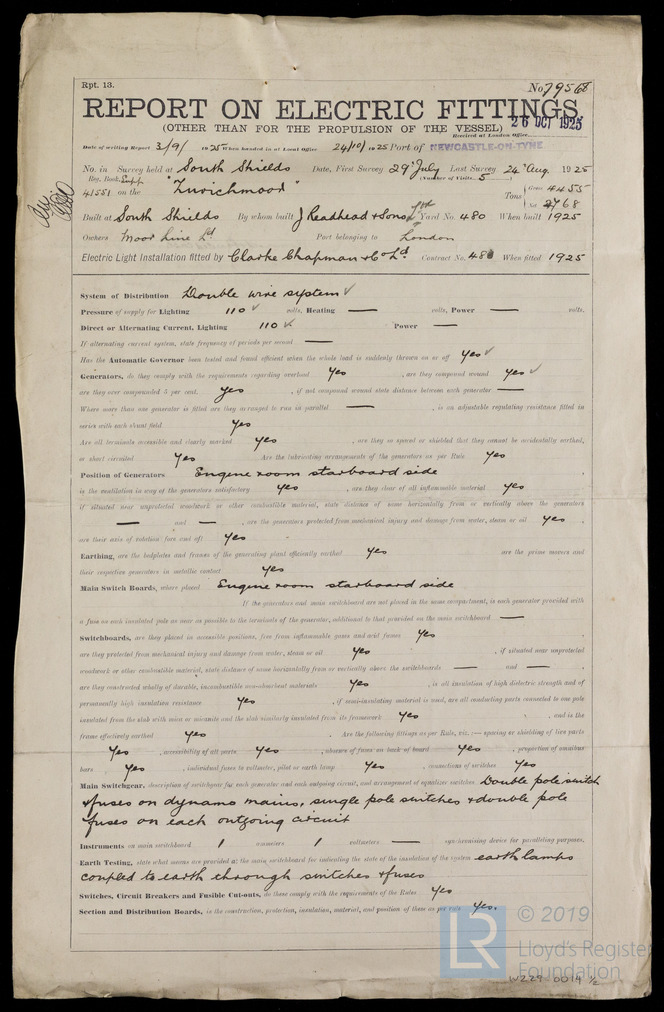 Rpt. 13.
No 79568
REPORT ON ELECTRIC FITTINGS,
(OTHER THAN FOR THE PROPULSION OF THE VESSEL)
26 OCT 1925
Received at London Office
Date of writing Report 3/9/ 1925 When handed in at Local Office 24/10/1925 Port of NEWCASTLE-ON-TYNE
No. in Survey held at South Shields Date, First Survey 29 July Last Survey 24 Aug. 1925
Reg. Book. Supp (Number of Visits 5
41551 on the "Zurichmoor" Tons { Gross 4455
Net 2768
Built at South Shields By whom built J Readhead & Sons Ltd Yard No. 480 When built 1925
Owners Moor Line Ld Port belonging to London
Electric Light Installation fitted by Clarke Chapman & Co Ld. Contract No. 480 When fitted 1925
System of Distribution Double wire system ✓
Pressure of supply for Lighting 110 ✓ volts, Heating — volts, Power — volts.
Direct or Alternating Current, Lighting 110 ✓ Power —
If alternating current system, state frequency of periods per second —
Has the Automatic Governor been tested and found efficient when the whole load is suddenly thrown on or off Yes ✓
Generators, do they comply with the requirements regarding overload Yes , are they compound wound Yes ✓
are they over compounded 5 per cent. Yes , if not compound wound state distance between each generator —
Where more than one generator is fitted are they arranged to run in parallel — , is an adjustable regulating resistance fitted in
series with each shunt field Yes
Are all terminals accessible and clearly marked Yes , are they so spaced or shielded that they cannot be accidentally earthed,
or short circuited Yes Are the lubricating arrangements of the generators as per Rule Yes
Position of Generators Engine room starboard side
is the ventilation in way of the generators satisfactory Yes , are they clear of all inflammable material Yes
if situated near unprotected woodwork or other combustible material, state distance of same horizontally from or vertically above the generators
— and — , are the generators protected from mechanical injury and damage from water, steam or oil Yes ,
are their axis of rotation fore and aft Yes
Earthing, are the bedplates and frames of the generating plant efficiently earthed Yes are the prime movers and
their respective generators in metallic contact Yes
Main Switch Boards, where placed Engine room starboard side
If the generators and main switchboard are not placed in the same compartment, is each generator provided with
a fuse on each insulated pole as near as possible to the terminals of the generator, additional to that provided on the main switchboard —
Switchboards, are they placed in accessible positions, free from inflammable gases and acid fumes Yes ,
are they protected from mechanical injury and damage from water, steam or oil Yes , if situated near unprotected
woodwork or other combustible material, state distance of same horizontally from or vertically above the switchboards — and — ,
are they constructed wholly of durable, incombustible non-absorbent materials Yes , is all insulation of high dielectric strength and of
permanently high insulation resistance Yes , if semi-insulating material is used, are all conducting parts connected to one pole
insulated from the slab with mica or micanite and the slab similarly insulated from its framework Yes , and is the
frame effectively earthed Yes . Are the following fittings as per Rule, viz.:— spacing or shielding of live parts
Yes , accessibility of all parts Yes , absence of fuses on back of board Yes , proportion of omnibus
bars Yes , individual fuses to voltmeter, pilot or earth lamp Yes , connections of switches Yes
Main Switchgear, description of switchgear for each generator and each outgoing circuit, and arrangement of equalizer switches Double pole switch
& fuses on dynamo mains, single pole switches & double pole
fuses on each outgoing circuit
Instruments on main switchboard 1 ammeters 1 voltmeters — synchronising device for paralleling purposes.
Earth Testing, state what means are provided at the main switchboard for indicating the state of the insulation of the system earth lamps
coupled to earth through switches & fuses
Switches, Circuit Breakers and Fusible Cut-outs, do these comply with the requirements of the Rules Yes
Section and Distribution Boards, is the construction, protection, insulation, material, and position of these as per rule Yes.
LR
© 2019
Lloyd's Register
Foundation
W229-0014 1/2